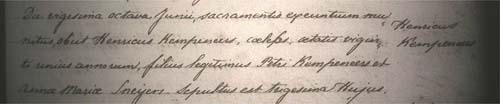 Die vigesima octava Junii, sacramentis exeuntium mu
nitus, obiit Henricus Kempeneers, caelebs, aetatis viginti
et unius annorum, filius legitimus Petri Kempeneers et
Annae Mariae Sneijers. Sepultus est trigesima hujus.
Henricus
Kempeneers